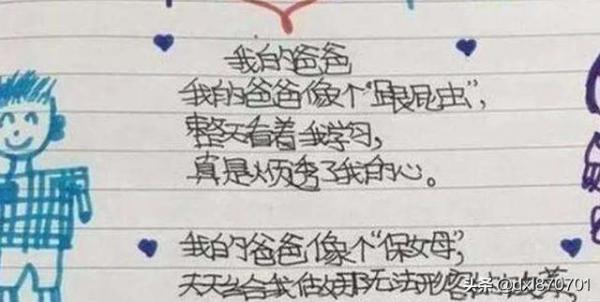 我的爸爸
我的爸爸像个“跟屁虫”，
整天看着我学习，
真是烦透了我的心。
我的爸爸像个“保姆”，
天天给我做那无法形
头条 @dxl870701